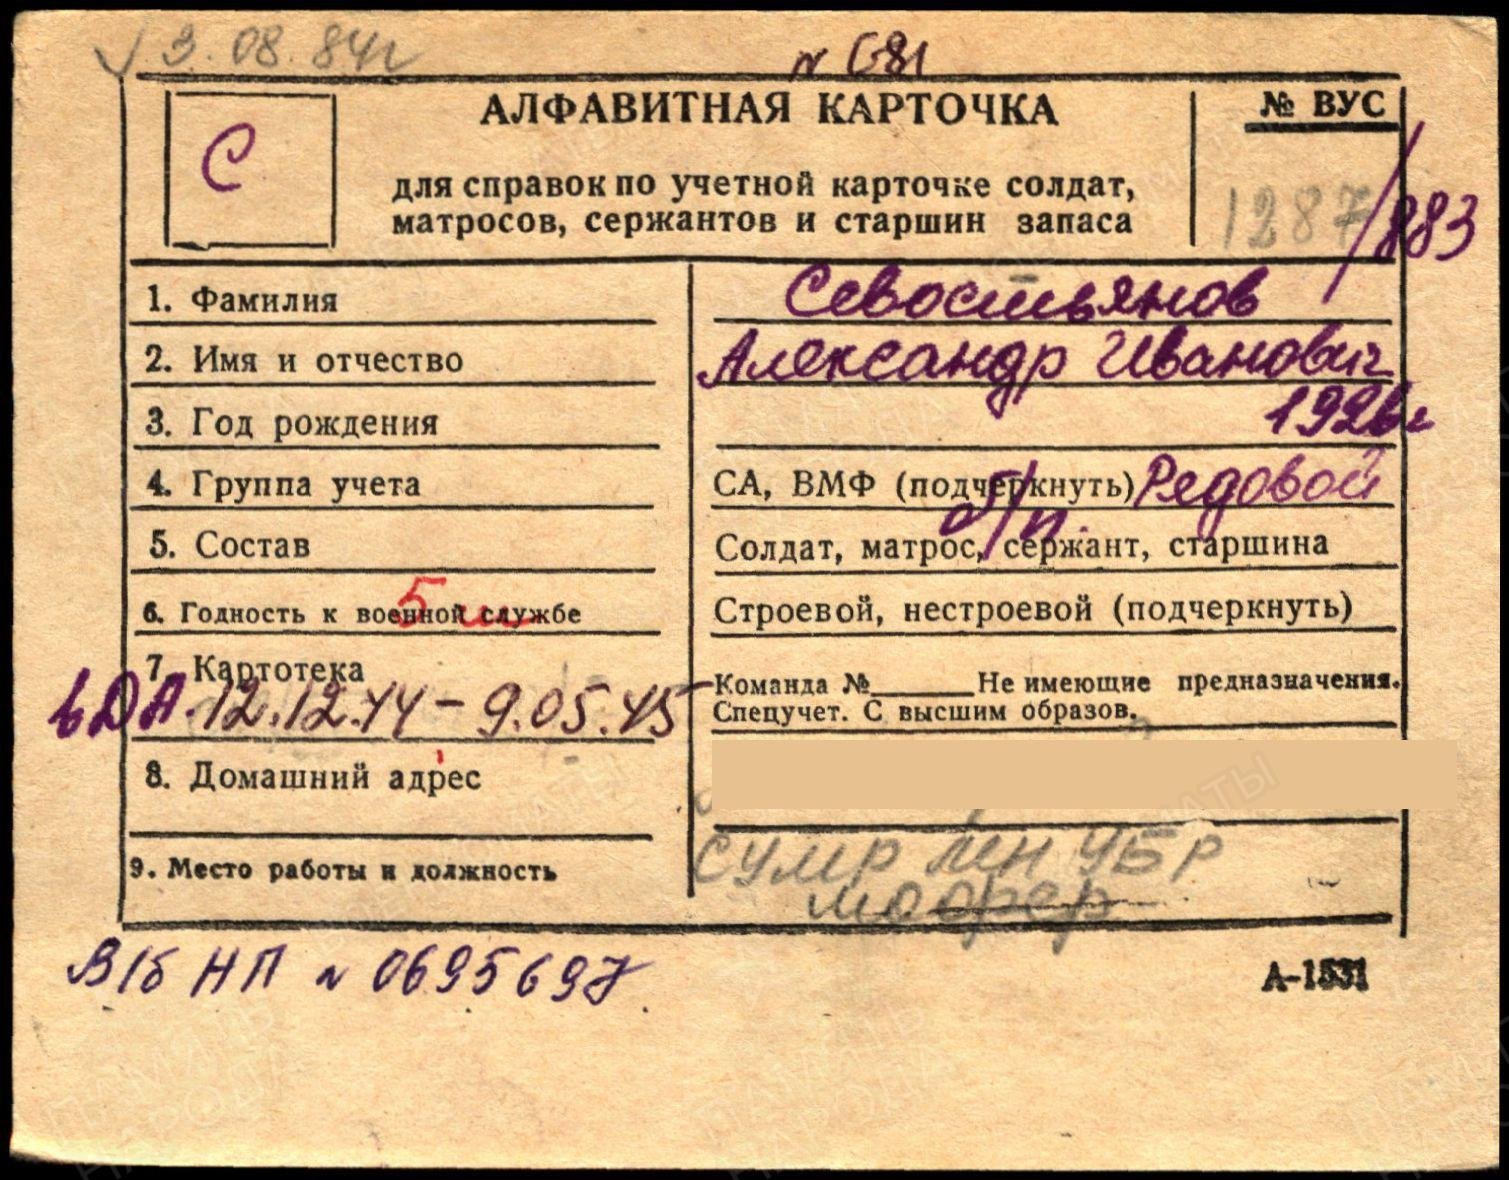 3.08.84г
№ 681
С
АЛФАВИТНАЯ КАРТОЧКА
№ ВУС
для справок по учетной карточке солдат,
матросов, сержантов и старшин запаса
1287/883
1. Фамилия Севостьянов
2. Имя и отчество Александр Иванович
3. Год рождения 1926г
4. Группа учета СА, ВМФ (подчеркнуть) Рядовой
б/п.
5. Состав Солдат, матрос, сержант, старшина
6. Годность к военной службе Строевой, нестроевой (подчеркнуть)
5
7. Картотека Команда №______ Не имеющие предназначения.
Спецучет. С высшим образов.
вДА. 12.12.44 - 9.05.45
8. Домашний адрес
9. Место работы и должность
УБР
В/б НП № 0695697.
А-1531
ПАМЯТЬ
НАРОДА